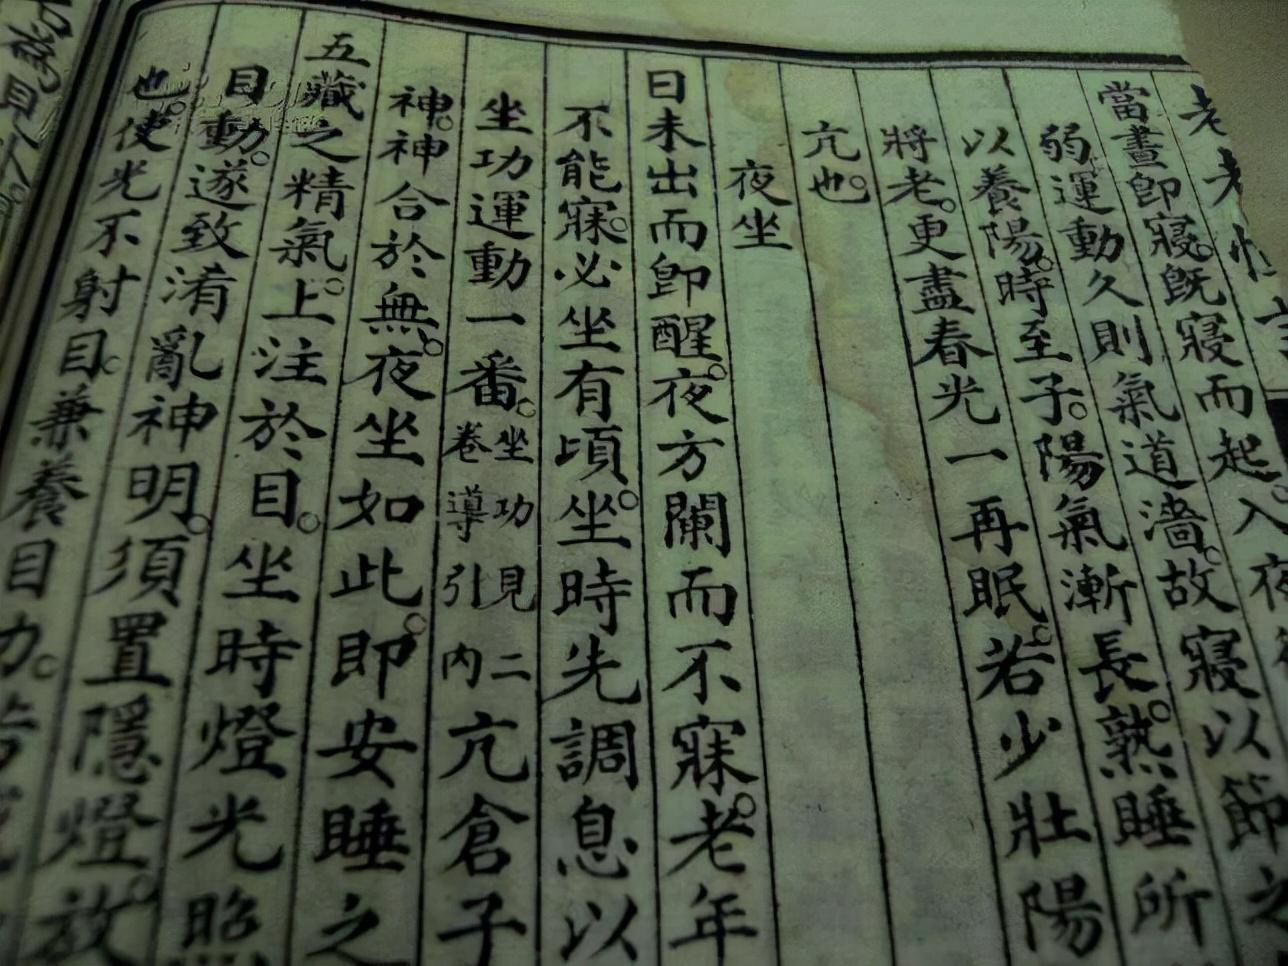 老老恒言
當晝卽寢。旣寢而起。入夜
弱。運動久則氣道濇。故寢以節之
以養陽。時至子。陽氣漸長。熟睡所
將老。更盡春光一再眠。若少壯陽
亢也。
夜坐
日未出而卽醒。夜方闌而不寐。老年
不能寐。必坐有頃。坐時先調息以
坐功運動一番。坐功見二卷導引內亢倉子
神。神合於無。夜坐如此。即安睡之
五藏之精氣。上注於目。坐時燈光照
目動。遂致淆亂神明。須置隱燈。放
也。使光不射目。兼養目力。